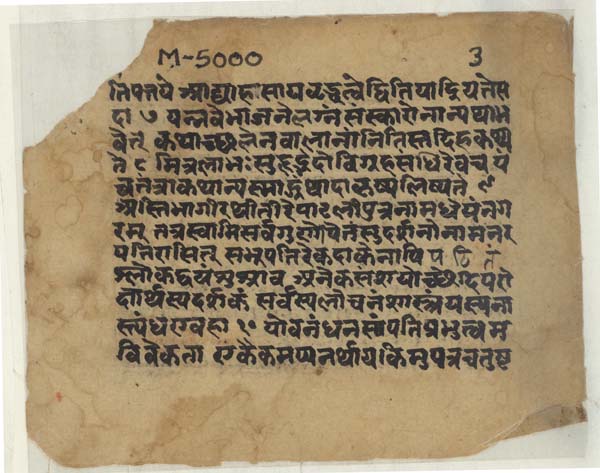 M-5000 3
तिपतये आद्याहासायवृद्धत्वेद्वितियाद्रियतेस
दा ७ यन्नवेभाजनेलग्नसंस्कारोनान्यथाभ
वेत् कथाच्छलेनबालानांनितिस्तदिहकथ्य
ते ८ मित्रलाभःसुहृद्भेदोविग्रहसंधिरेवच पं
चतंत्राकथान्यस्माद्ग्रंथादाकृष्यलिख्यते ९
अस्तिभागीरथीतीरेपाटलीपुत्रनामधेयंनग
रम् तत्रस्वामिसर्वगुणोपेतंसुदर्शनोनामनर
पतिरासित् सभूपतिरेकदाकेनापि पठितं
श्लोकद्वयंशुश्राव अनेकसंशयोच्छेदिपरो
क्षार्थस्यदर्शकं सर्वस्यलोचनंशास्त्रंयस्यना
स्त्यंधएवसः १० योवनंधनसंपतिप्रभुत्वम
विवेकता एकैकमप्यनर्थायकिमुयत्रचतुष्ट